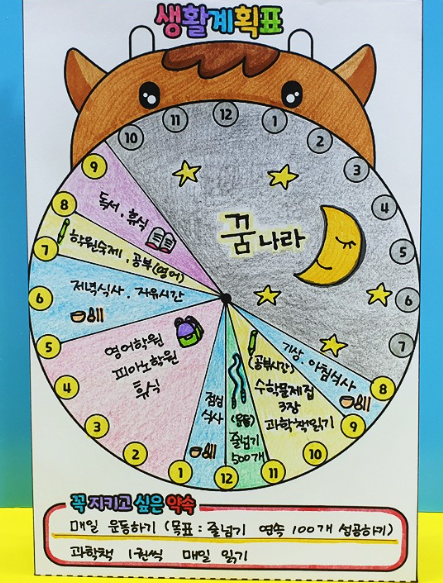 생활계획표
12
1
2
3
4
5
6
7
8
9
10
11
12
1
2
3
4
5
6
7
8
9
10
11
꿈나라
기상 · 아침식사
(공부시간)
수학문제집
3장
과학책읽기
(운동)
줄넘기
500개
점심
식사
영어학원
피아노학원
휴식
저녁식사 · 자유시간
학원숙제 · 공부(영어)
독서 · 휴식
꼭 지키고 싶은 약속
매일 운동하기 (목표 : 줄넘기 연속 100개 성공하기)
과학책 1권씩 매일 읽기